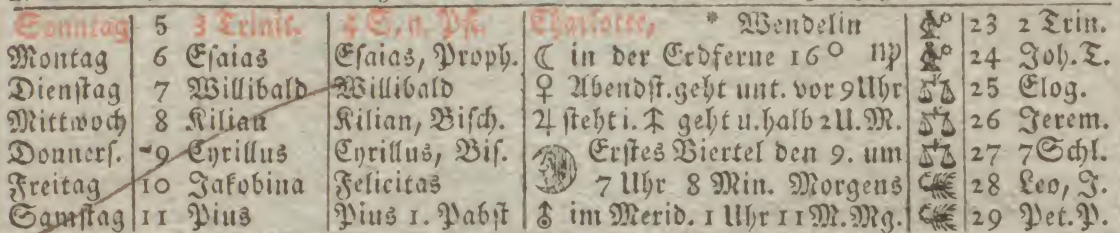 Sonntag 5 3 Trinit. 4 S. n. Pf. Charlotte, * Wendelin 23 2 Trin.
Montag 6 Esaias Esaias, Proph. ☾ in der Erdferne 16° ♍ 24 Joh. T.
Dienstag 7 Willibald Willibald ♀ Abendst. geht unt. vor 9 Uhr ♎ 25 Elog.
Mittwoch 8 Kilian Kilian, Bisch. ♃ steht i. ♐ geht u. halb 2 U. M. ♎ 26 Jerem.
Donners. 9 Cyrillus Cyrillus, Bis. Erstes Viertel den 9. um ♎ 27 7 Schl.
Freitag 10 Jakobina Felicitas 7 Uhr 8 Min. Morgens ♏ 28 Leo, J.
Samstag 11 Pius Pius 1. Pabst ♁ im Merid. 1 Uhr 11 M. Mg. ♏ 29 Pet. P.